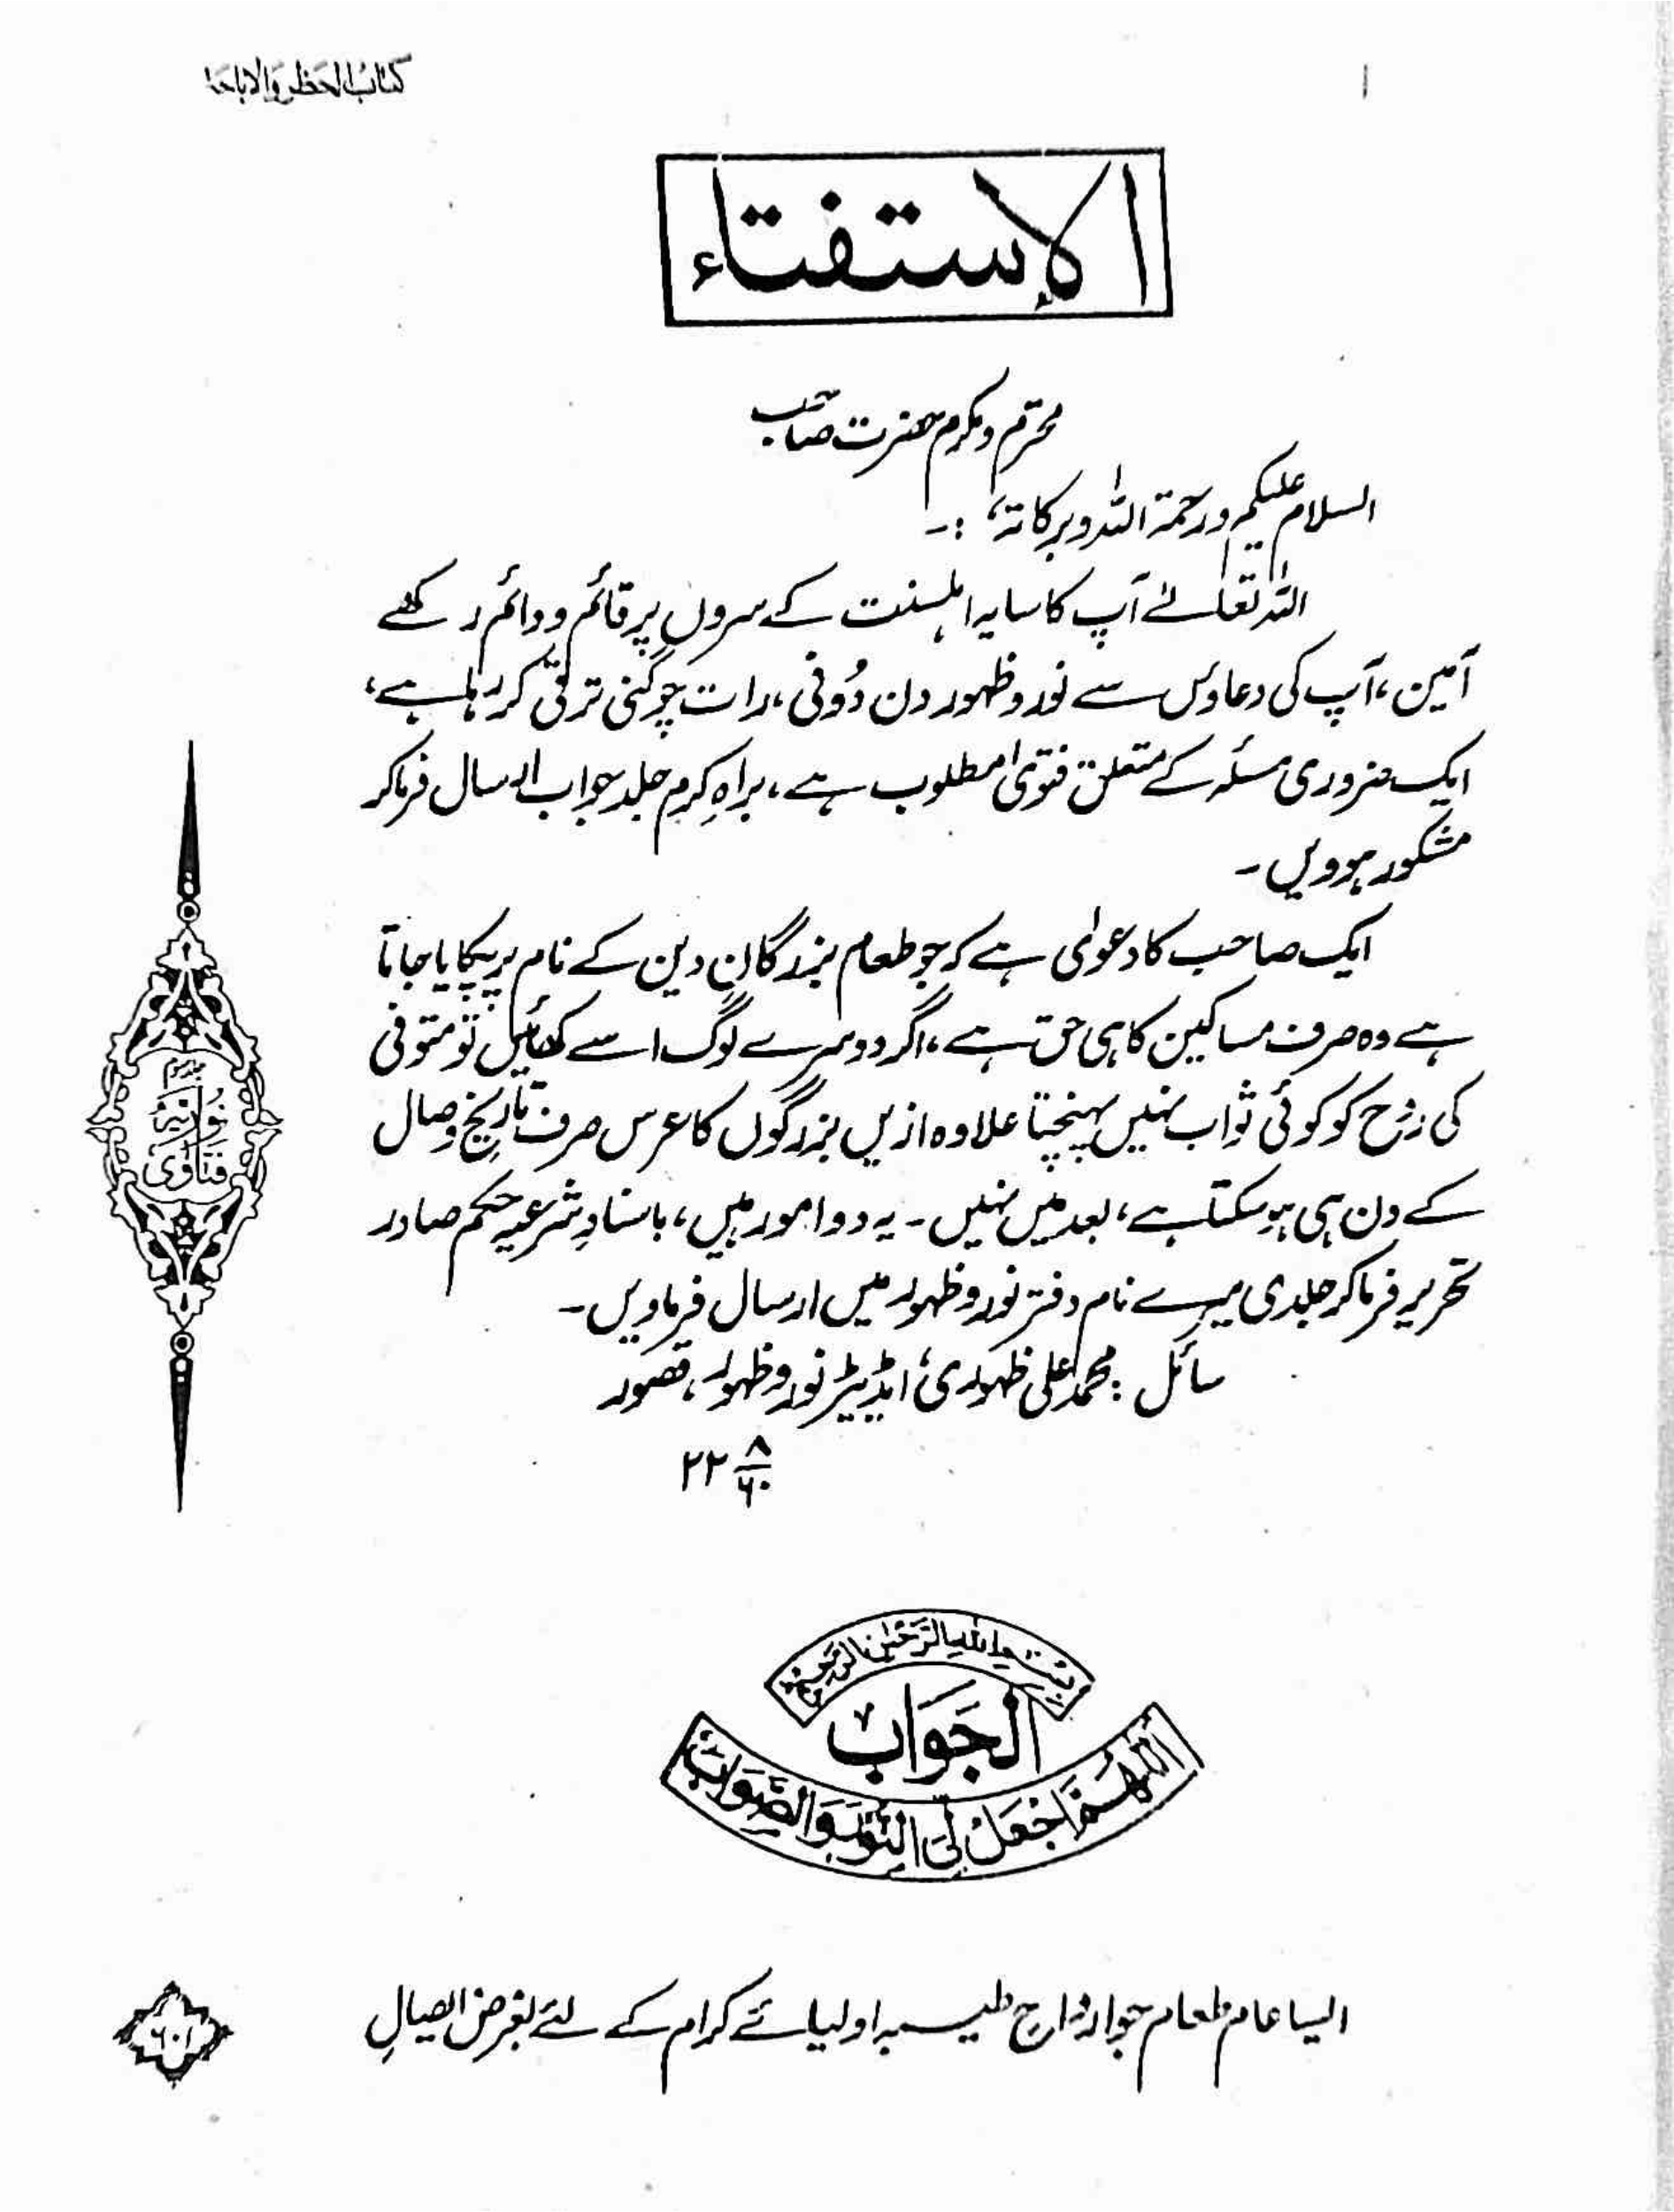 كتاب الحظر والاباحة
الاستفتاء
محترم و مکرم حضرت صاحب
السلام علیکم ورحمۃ اللہ وبرکاتہ، :۔
اللہ تعالےٰ آپ کا سایہ اہلسنت کے سروں پر قائم و دائم رکھے
آمین، آپ کی دعاؤں سے نور و ظہور دن دُونی، رات چوگنی ترقی کر رہا ہے،
ایک ضروری مسئلہ کے متعلق فتویٰ مطلوب ہے، براہِ کرم جلد جواب ارسال فرما کر
مشکور ہوویں ۔
ایک صاحب کا دعویٰ ہے کہ جو طعام بزرگانِ دین کے نام پر پکایا جاتا
ہے وہ صرف مساکین کا ہی حق ہے، اگر دوسرے لوگ اسے کھائیں تو متوفی
کی رُوح کو کوئی ثواب نہیں پہنچتا علاوہ ازیں بزرگوں کا عرس صرف تاریخِ وصال
کے دن ہی ہو سکتا ہے، بعد میں نہیں ۔ یہ دو امور ہیں، باسنادِ شرعیہ حکم صادر
تحریر فرما کر جلدی میرے نام دفتر نور و ظہور میں ارسال فرماویں ۔
سائل : محمد علی ظہوری، ایڈیٹر نور و ظہور، قصور
۲۲ ۸/۶۰
فتاویٰ نوریہ
بسم الله الرحمن الرحيم
الجَوَاب
اللّٰهُمَّ اجْعَلْ لِيَ النُّوْرَ وَالصَّوَابَ
ایسا عام طعام جو ارواحِ طیبہ اولیائے کرام کے لئے بغرض ایصالِ
۶۰۱